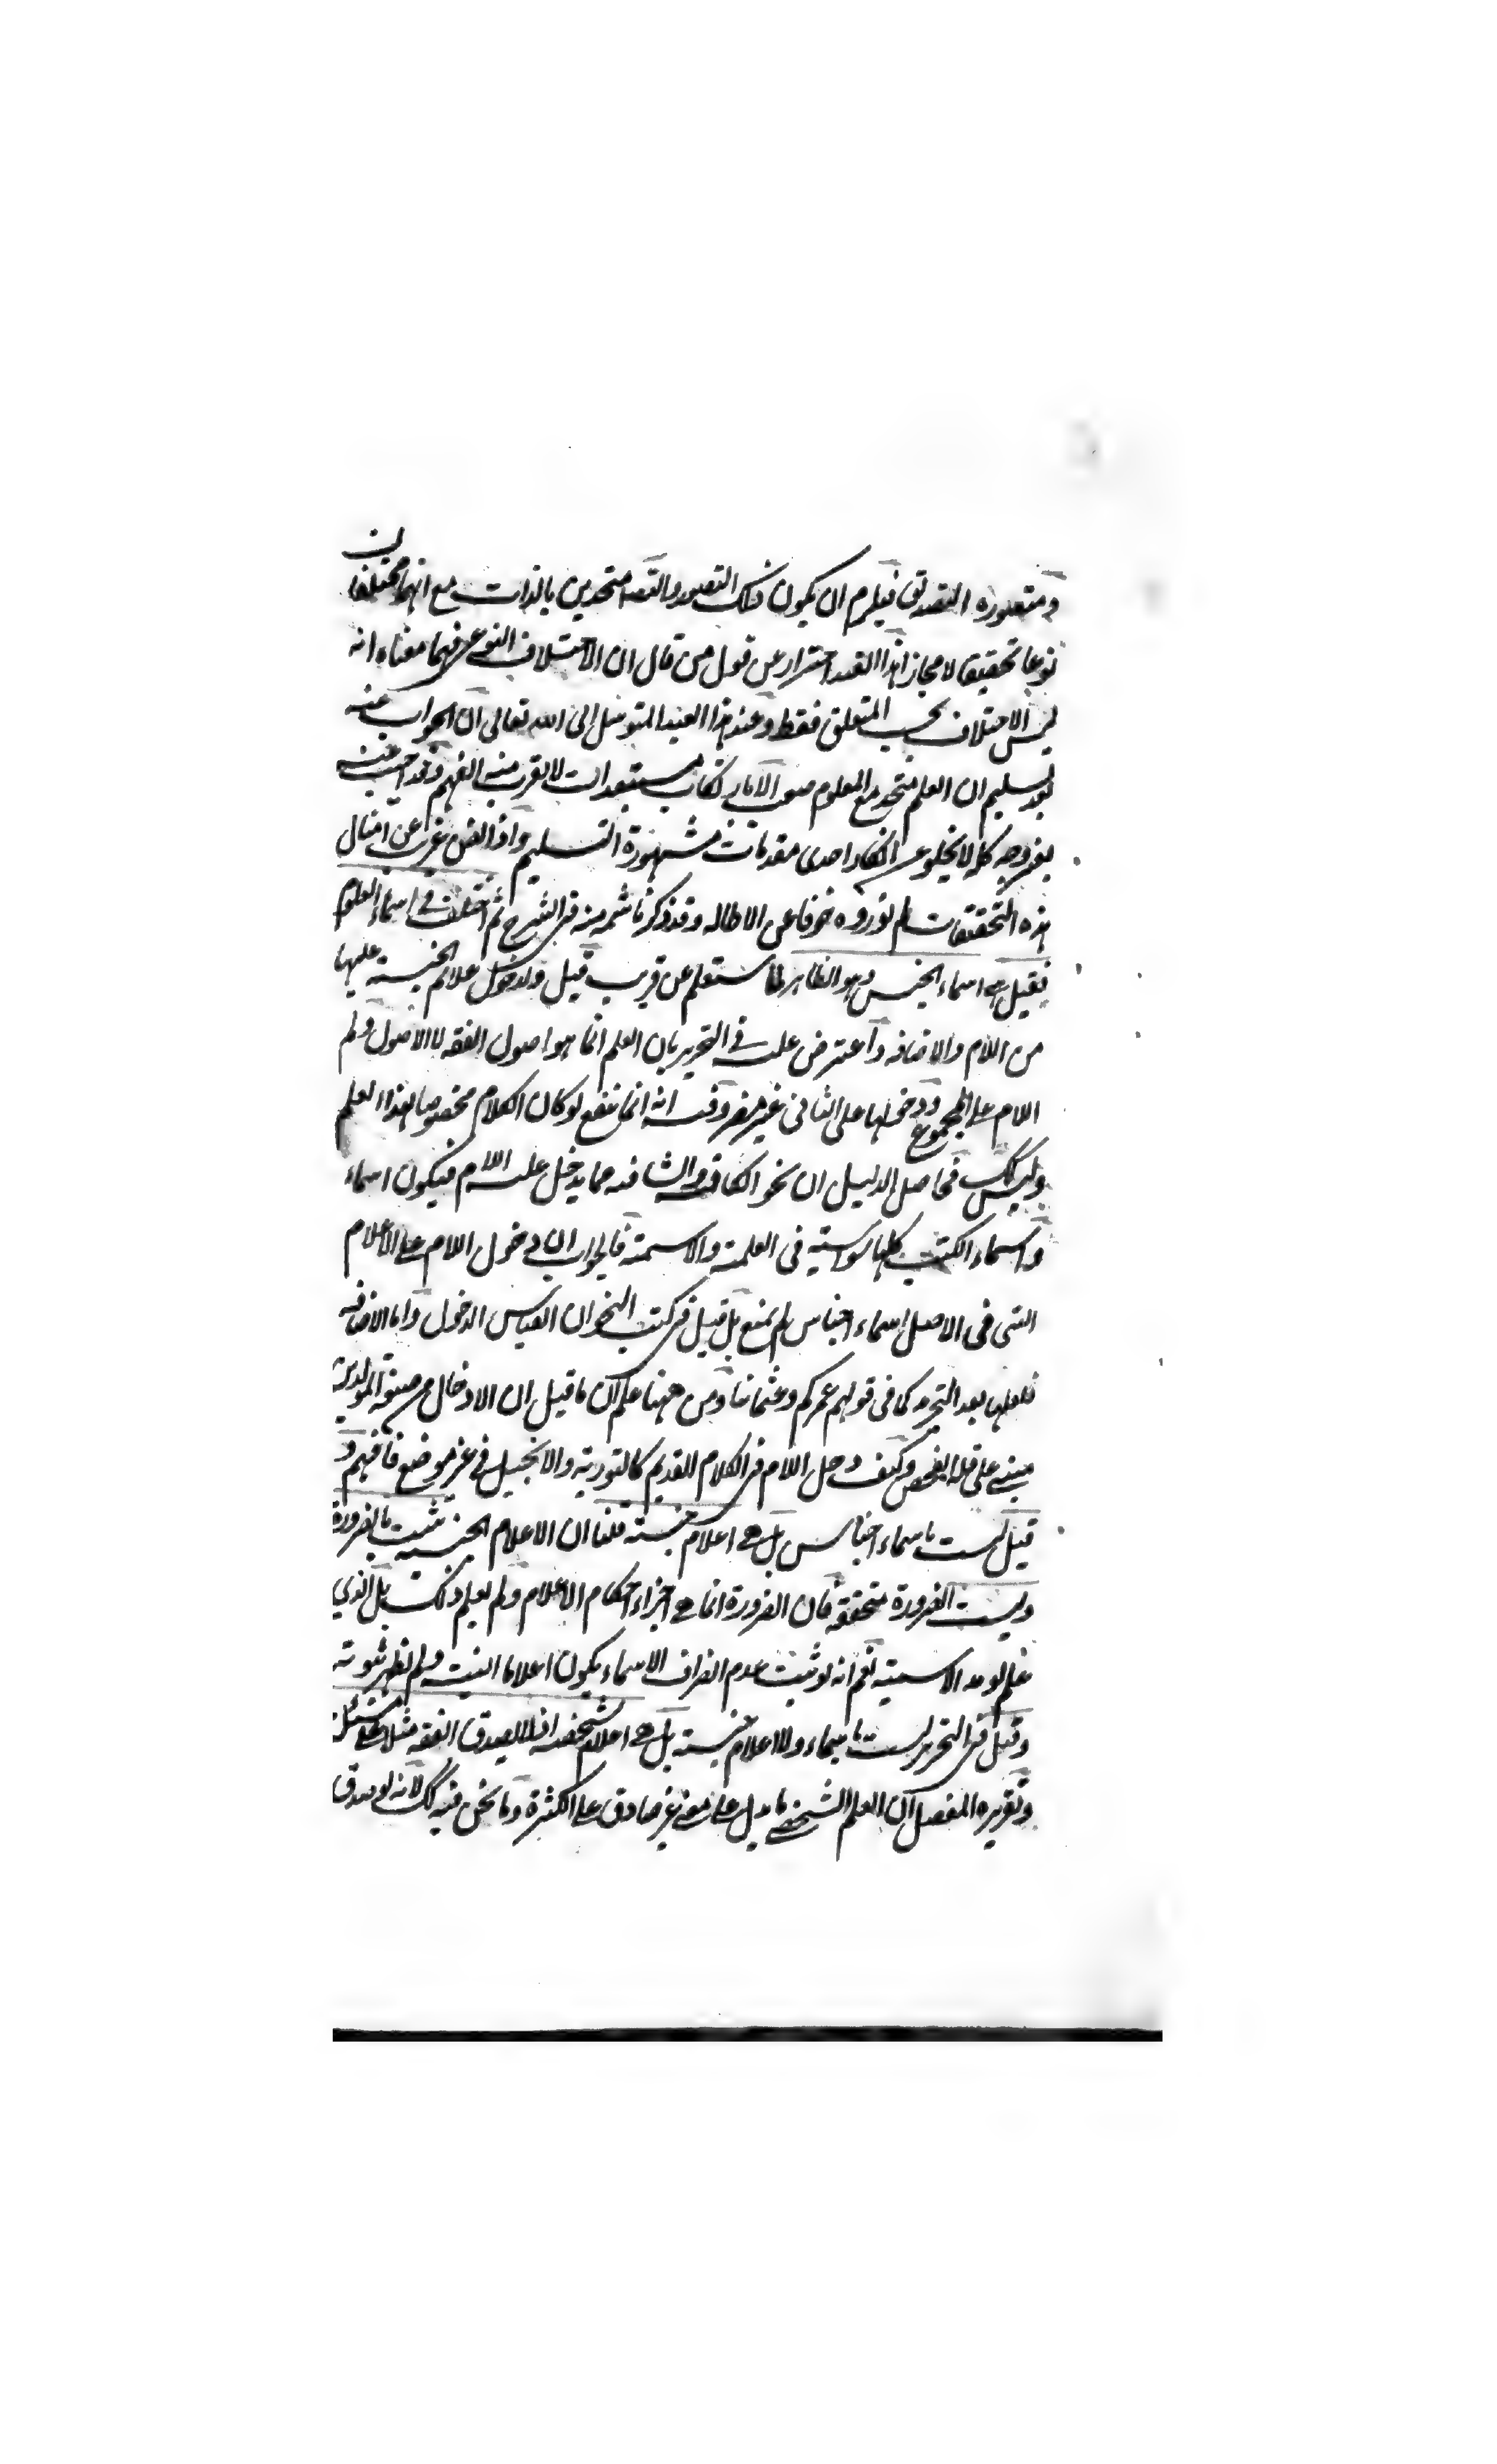 ومتصوره التصديق فيلزم ان يكون ذلك التصور والتصد متحدين بالذات مع انهما مختلفان
نوعا تحقيقا لا مجازا هذا القيد احتراز عن قول من قال ان الاختلاف النوعى فيهما معناه انه
ليس الاختلاف بحسب المتعلق فقط وعند هذا العبد المتوسل الى الله تعالى ان الجواب عنه
بعد تسليم ان العلم متحد مع المعلوم صعب الا بارتكاب مستبعدات لا يقرب منه الفهم وقد اجيب عنه
بغير وجه كله لا يخلو عن انكار احدى مقدمات مشهورة التسليم واذ الفن غريب عن امثال
هذه التحقيقات لم نورده خوفا عن الاطاله وقد ذكرنا شمه منه فى الشرح ثم اختلف فى اسماء العلوم
فقيل هى اسماء الجنس وهو الظاهر لما ستعلم عن قريب قيل ولدخول علائم الجنسية عليها
من اللام والاضافه واعترض عليه فى التحرير بان العلم انما هو اصول الفقه لا الاصول ولم
اللام على المجموع ودخولها على الثانى غير مضر وفيه انه انما ينفع لو كان الكلام مخصوصا بهذا العلم
وليس كك فحاصل الدليل ان نحو الكافيه والشافيه مما يدخل عليه اللام فيكون اسماء
واسماء الكتب كلها سواسيه فى العلمية والاسمية فالجواب ان دخول اللام على الاعلام
التى فى الاصل اسماء اجناس لم يمنع بل قيل فى كتب النحو ان القياس الدخول واما الاضافه
فلعلها بعد التجريد كما فى قولهم عمركم وعثماننا ومن ههنا علم ان ما قيل ان الادخال من صنيع المولدين
مبنى على قله الفحص وكيف دخل اللام فى الكلام القديم كالتورية والانجيل فى غير موضع فافهم و
قيل ليست باسماء اجناس بل هى اعلام جنسية قلنا ان الاعلام الجنسية تثبت بالضرورة
وليست الضرورة متحققة فان الضرورة انما هى اجراء احكام الاعلام ولم يعلم ذلك بل الذي
علم لوم الاسمية نعم انه لو ثبت عدم انصراف الاسماء يكون اعلاما البتة ولم يظهر ثبوته
وقيل فى التحرير ليست باسماء ولا اعلام جنسية بل هى اعلام شخصيه اذ لا يصدق الفقه مثلا على مسئلة
وتقريره المفصل ان العلم الشخصى ما يدل على معنى غير صادق على الكثرة وما نحن فيه كك لانه لو صدق